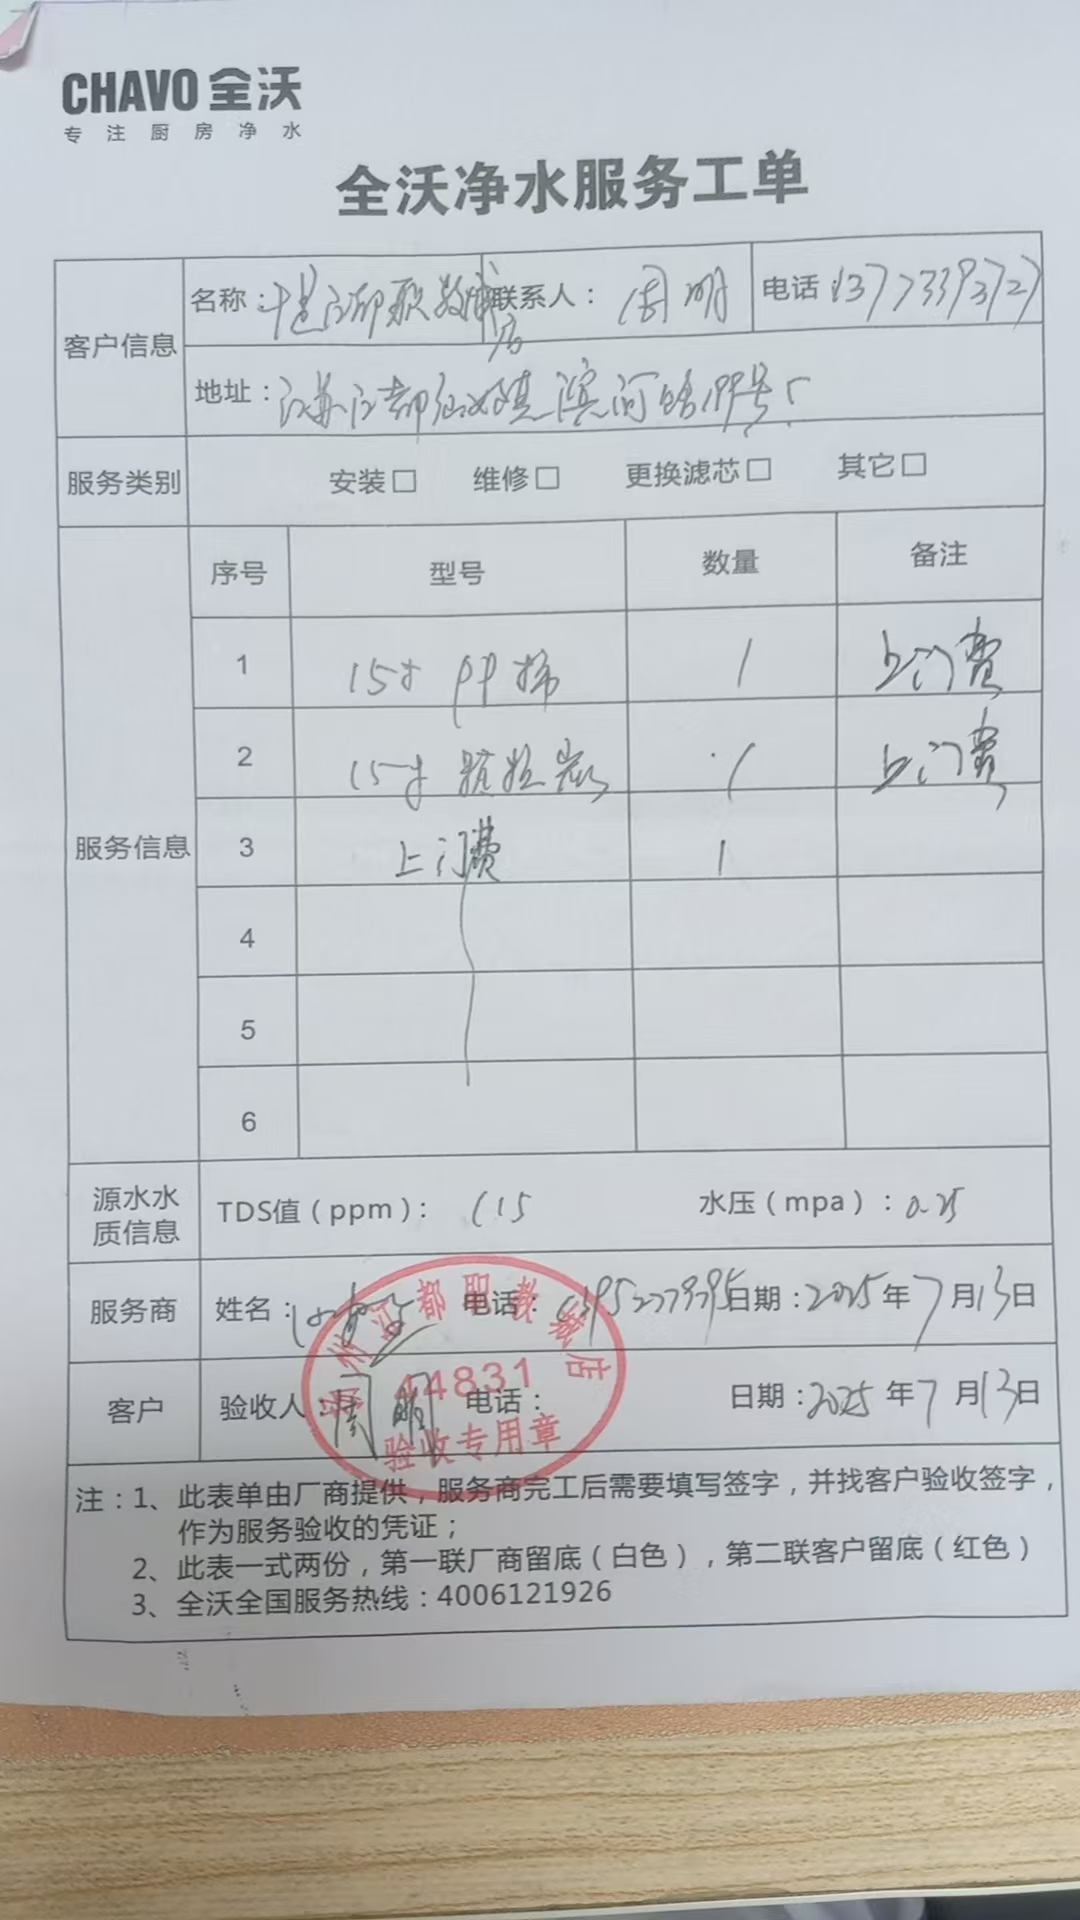 CHAVO 全沃
专注厨房净水
全沃净水服务工单
客户信息
名称：江都职教城店 联系人：周明 电话：13773393727
地址：江苏江都仙女镇滨河路199号
服务类别 安装□ 维修□ 更换滤芯□ 其它□
服务信息
序号 型号 数量 备注
1 15寸PP棉 1 上门费
2 15寸 1 上门费
3 上门费 1
4
5
6
源水水质信息 TDS值（ppm）：115 水压（mpa）：0.25
服务商 姓名： 电话： 日期：2025年7月13日
客户 验收人：周明 电话： 日期：2025年7月13日
扬州江都职教城店
44831
验收专用章
注：1、此表单由厂商提供，服务商完工后需要填写签字，并找客户验收签字，
作为服务验收的凭证；
2、此表一式两份，第一联厂商留底（白色），第二联客户留底（红色）
3、全沃全国服务热线：4006121926